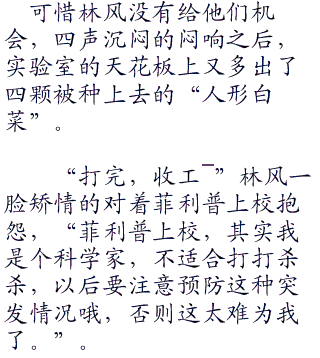 可惜林风没有给他们机
会，四声沉闷的闷响之后，
实验室的天花板上又多出了
四颗被种上去的“人形白
菜”。
“打完，收工¯”林风一
脸矫情的对着菲利普上校抱
怨，“菲利普上校，其实我
是个科学家，不适合打打杀
杀，以后要注意预防这种突
发情况哦，否则这太难为我
了。”。